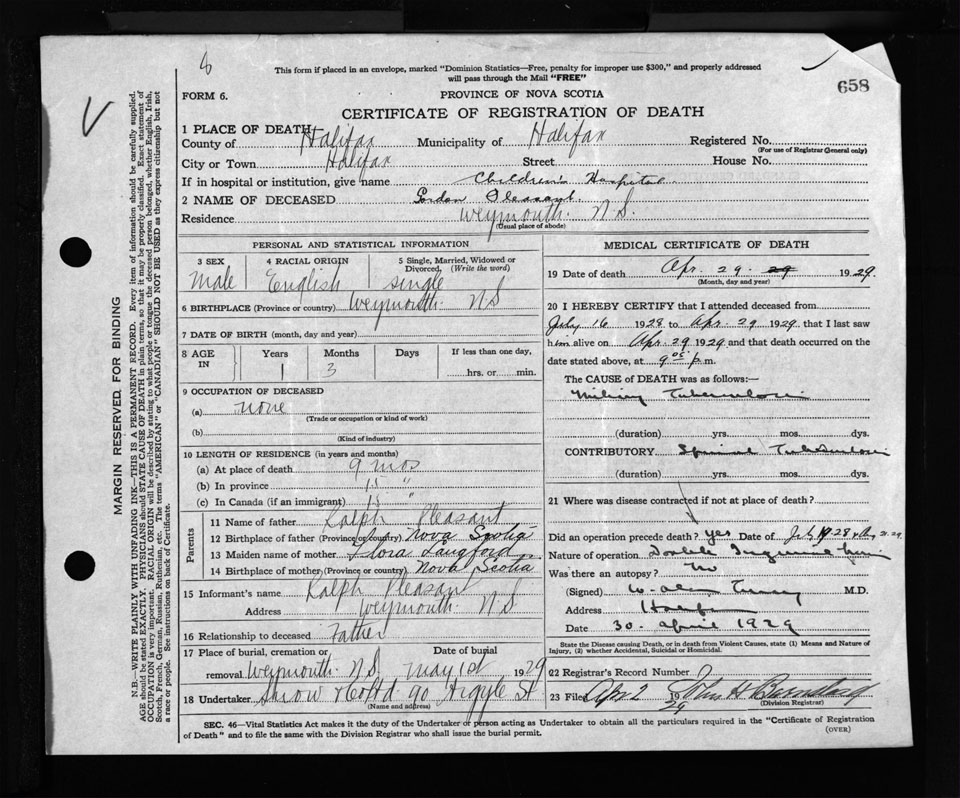 6
This form if placed in an envelope, marked "Dominion Statistics—Free, penalty for improper use $300," and properly addressed
will pass through the Mail "FREE"
658
FORM 6.
PROVINCE OF NOVA SCOTIA
CERTIFICATE OF REGISTRATION OF DEATH
1 PLACE OF DEATH
County of Halifax Municipality of Halifax Registered No.
(For use of Registrar General only)
City or Town Halifax Street House No.
If in hospital or institution, give name Children's Hospital
2 NAME OF DECEASED Gordon Pleasant
Residence Weymouth N.S.
(Usual place of abode)
PERSONAL AND STATISTICAL INFORMATION
3 SEX 4 RACIAL ORIGIN 5 Single, Married, Widowed or Divorced, (Write the word)
Male English Single
6 BIRTHPLACE (Province or country) Weymouth NS
7 DATE OF BIRTH (month, day and year)
8 AGE IN Years Months Days If less than one day,
1 3 hrs. or min.
9 OCCUPATION OF DECEASED
(a) none
(Trade or occupation or kind of work)
(b)
(Kind of industry)
10 LENGTH OF RESIDENCE (in years and months)
(a) At place of death 9 mos
(b) In province 15 "
(c) In Canada (if an immigrant) 15 "
Parents
11 Name of father Ralph Pleasant
12 Birthplace of father (Province or country) Nova Scotia
13 Maiden name of mother Flora Langford
14 Birthplace of mother (Province or country) Nova Scotia
15 Informant's name Ralph Pleasant
Address Weymouth N.S.
16 Relationship to deceased Father
17 Place of burial, cremation or Date of burial
removal Weymouth N.S. May 1st 1929
18 Undertaker Snow & Co Ltd 90 Argyle St
(Name and address)
MEDICAL CERTIFICATE OF DEATH
19 Date of death Apr. 29. 29 1929
(Month, day and year)
20 I HEREBY CERTIFY that I attended deceased from
July 16 1928 to Apr 29 1929, that I last saw
him alive on Apr 29 1929 and that death occurred on the
date stated above, at 9 05 p.m.
The CAUSE OF DEATH was as follows:—
Miliary Tuberculosis
(duration) yrs. mos. dys.
CONTRIBUTORY Spinal Tuberculosis
(duration) yrs. mos. dys.
21 Where was disease contracted if not at place of death?
Did an operation precede death? yes Date of July 1928
Nature of operation Double Inguinal
Was there an autopsy? no
(Signed) M.D.
Address Halifax
Date 30. April 1929
State the Disease causing Death, or in death from Violent Causes, state (1) Means and Nature of
Injury, (2) whether Accidental, Suicidal or Homicidal.
22 Registrar's Record Number
23 Filed 1929 John H Barnstead
(Division Registrar)
SEC. 46—Vital Statistics Act makes it the duty of the Undertaker or person acting as Undertaker to obtain all the particulars required in the "Certificate of Registration
of Death" and to file the same with the Division Registrar who shall issue the burial permit.
(OVER)
MARGIN RESERVED FOR BINDING
N.B.—WRITE PLAINLY WITH UNFADING INK—THIS IS A PERMANENT RECORD. Every item of information should be carefully supplied.
AGE should be stated EXACTLY. PHYSICIANS should STATE CAUSE OF DEATH in plain terms, so that it may be properly classified. Exact statement of
OCCUPATION is very important. RACIAL ORIGIN will be described by stating to what people or tongue the deceased person belonged, whether English, Irish,
Scotch, French, German, Russian, Ruthenian, etc. The terms "AMERICAN" or "CANADIAN" SHOULD NOT BE USED as they express citizenship but not
a race or people. See instructions on back of Certificate.